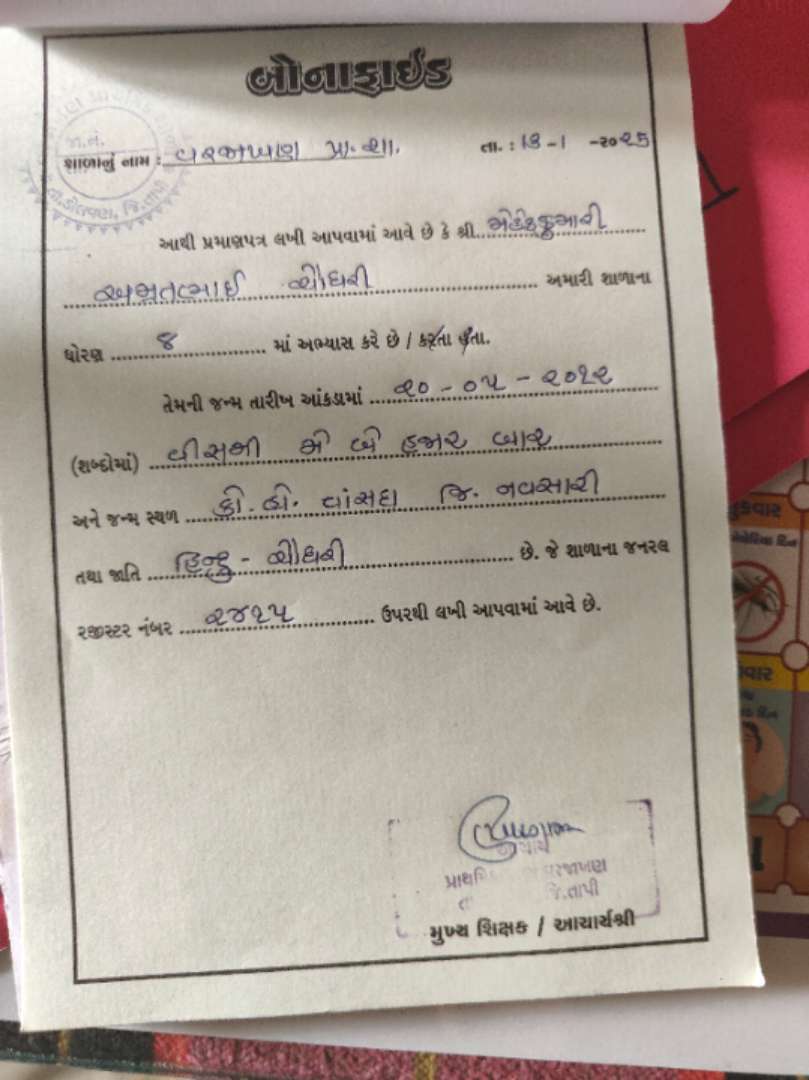 બોનાફાઈડ
જા.નં.
શાળાનું નામ : વરજાખણ પ્રા. શા. તા. : 13 - 1 - ૨૦25
તા.ડોલવણ, જિ.તાપી
આથી પ્રમાણપત્ર લખી આપવામાં આવે છે કે શ્રી
અમૃતભાઈ ચૌધરી અમારી શાળાના
ધોરણ ૪ માં અભ્યાસ કરે છે / કરતા હતા.
તેમની જન્મ તારીખ આંકડામાં ૨૦ - ૦૫ - ૨૦૧૨
(શબ્દોમાં) વીસમી મે બે હજાર બાર
અને જન્મ સ્થળ કો. હો. વાંસદા જિ. નવસારી
તથા જાતિ હિન્દુ - ચૌધરી છે. જે શાળાના જનરલ
રજીસ્ટર નંબર ૨૪૧૫ ઉપરથી લખી આપવામાં આવે છે.
આચાર્ય
વરજાખણ
જિ.તાપી
મુખ્ય શિક્ષક / આચાર્યશ્રી